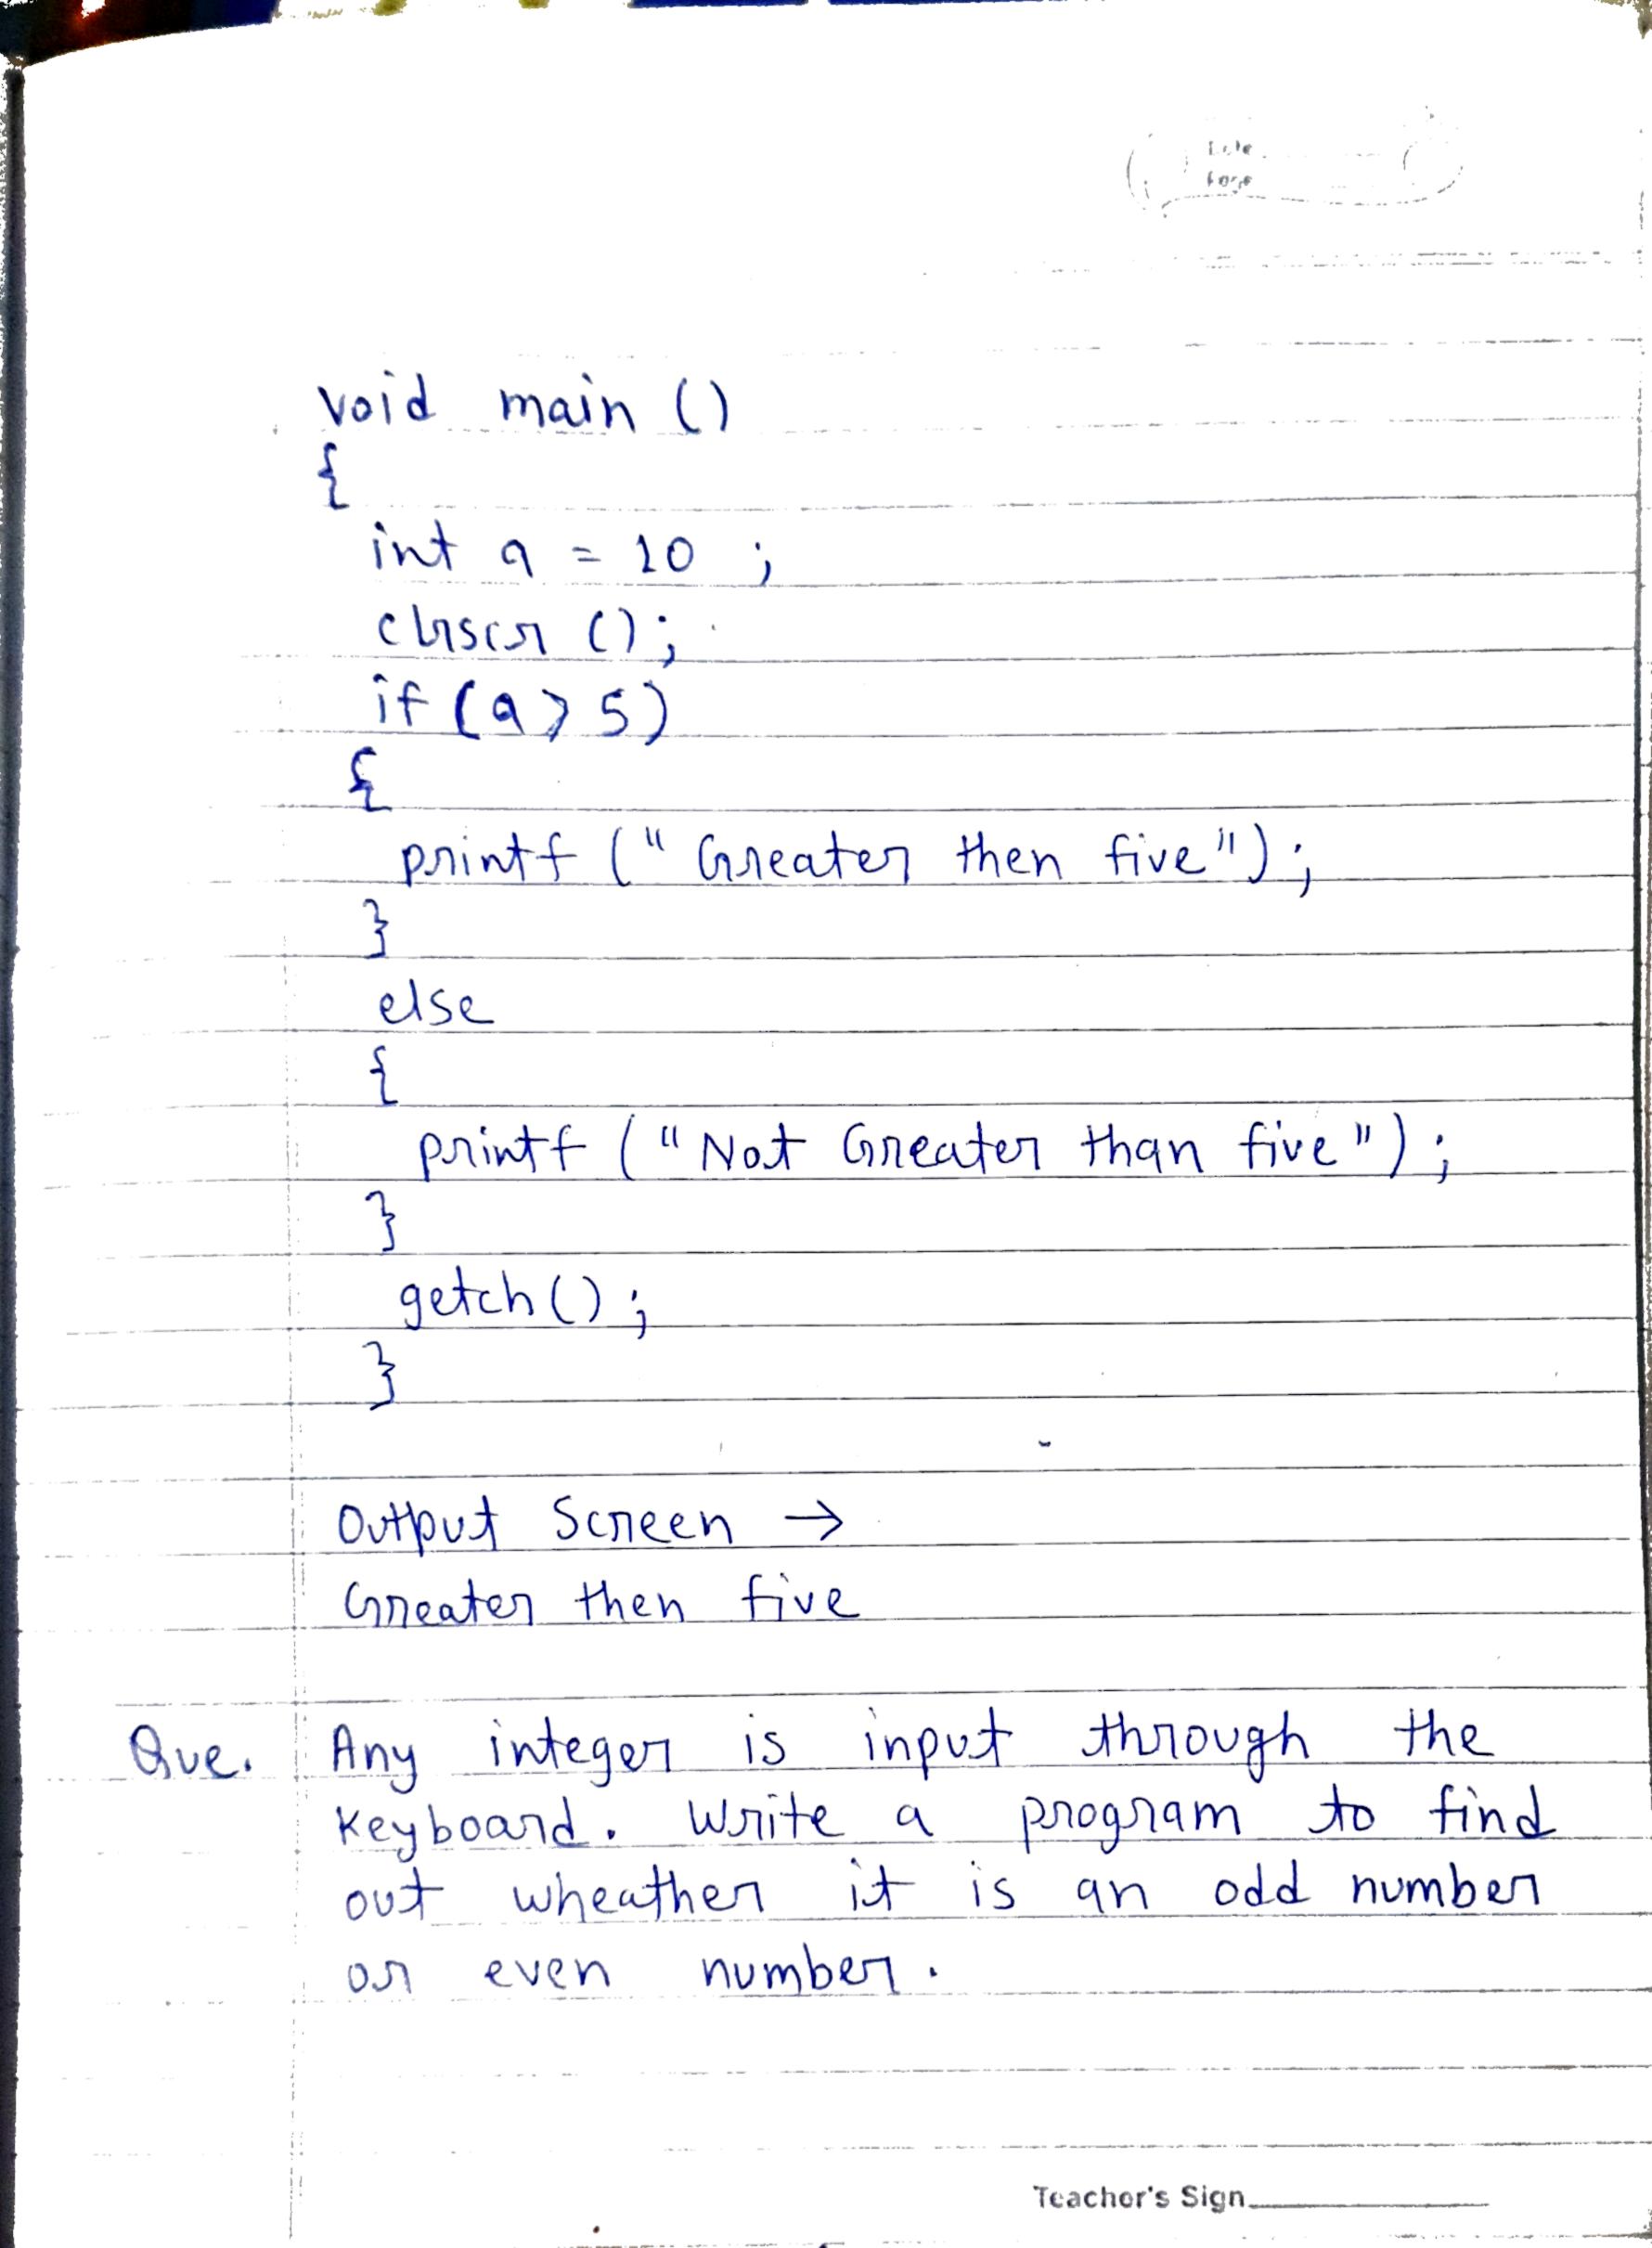 void main ()
{
int a = 10 ;
clrscr ();
if (a > 5)
{
printf (" Greater then five");
}
else
{
printf ("Not Greater than five");
}
getch();
}
Output Screen →
Greater then five
Que. Any integer is input through the
keyboard. Write a program to find
out wheather it is an odd number
or even number.
Teacher's Sign